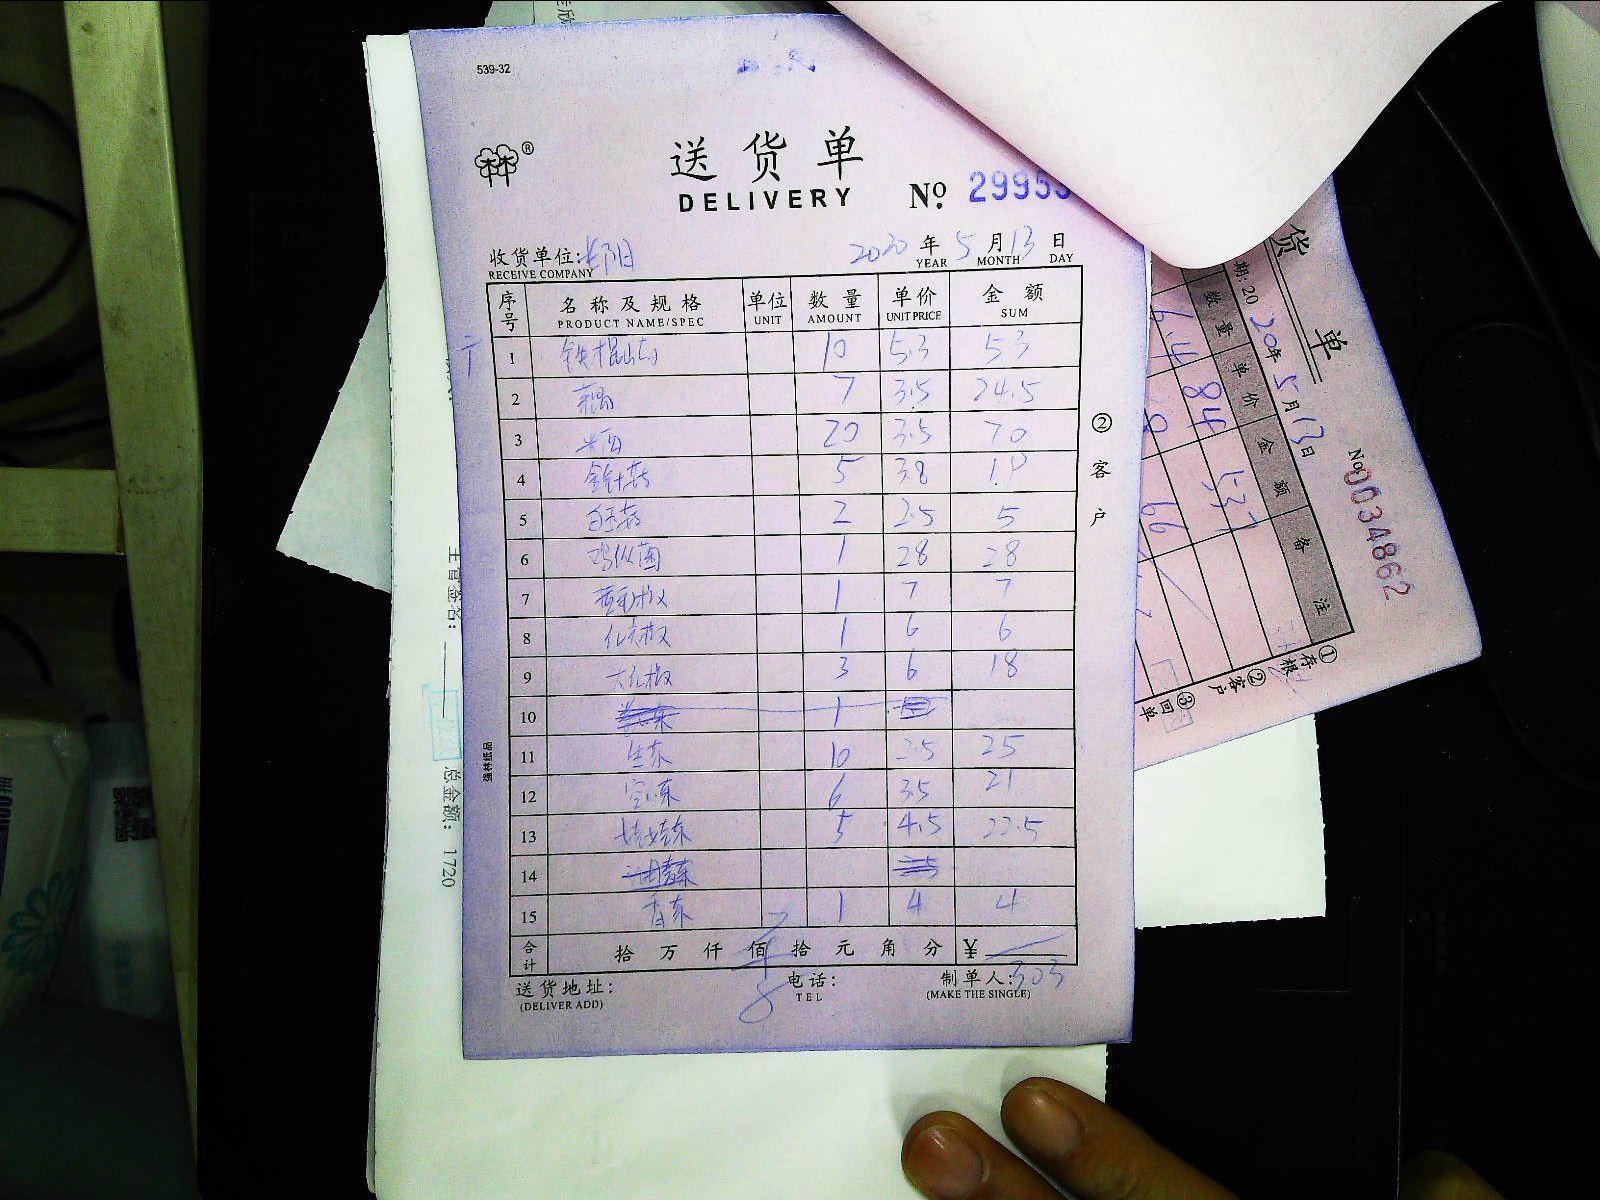 539-32
送货单
DELIVERY
No. 29953
收货单位:
RECEIVE COMPANY
2020 年 5 月 13 日
YEAR MONTH DAY
序号 名称及规格 单位 数量 单价 金额
PRODUCT NAME/SPEC UNIT AMOUNT UNIT PRICE SUM
1 铁棍山药 10 5.3 53
2 藕 7 3.5 24.5
3 20 3.5 70
4 金针菇 5 3.8 19
5 白玉菇 2 2.5 5
6 鸡枞菌 1 28 28
7 黄彩椒 1 7 7
8 红椒 1 6 6
9 大红椒 3 6 18
10 1
11 生菜 10 2.5 25
12 空心菜 6 3.5 21
13 娃娃菜 5 4.5 22.5
14 油麦菜
15 香菜 1 4 4
合计 拾 万 仟 佰 拾 元 角 分 ¥
303
送货地址: 电话: 制单人:
(DELIVER ADD) TEL (MAKE THE SINGLE)
②客户
强林纸品
总金额: 1720
货单
No 0034862
期: 2020年5月13日
数量 单价 金额 备注
6.4 84 537
66
①存根
②客户
③回单